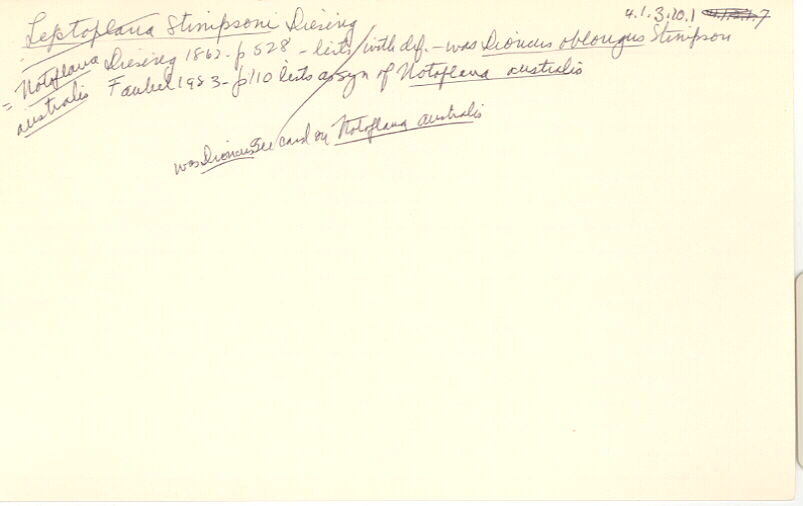 Leptoplana Stimpsoni Diesing
4.1.3.10.1
Diesing 1862 - p 528 - lists with df. - was Dioncus oblongus Stimpson
= Notoplana australis
Faubel 1983 - p 110 lists as syn of Notoplana australis
was Dioncus See card on Notoplana australis